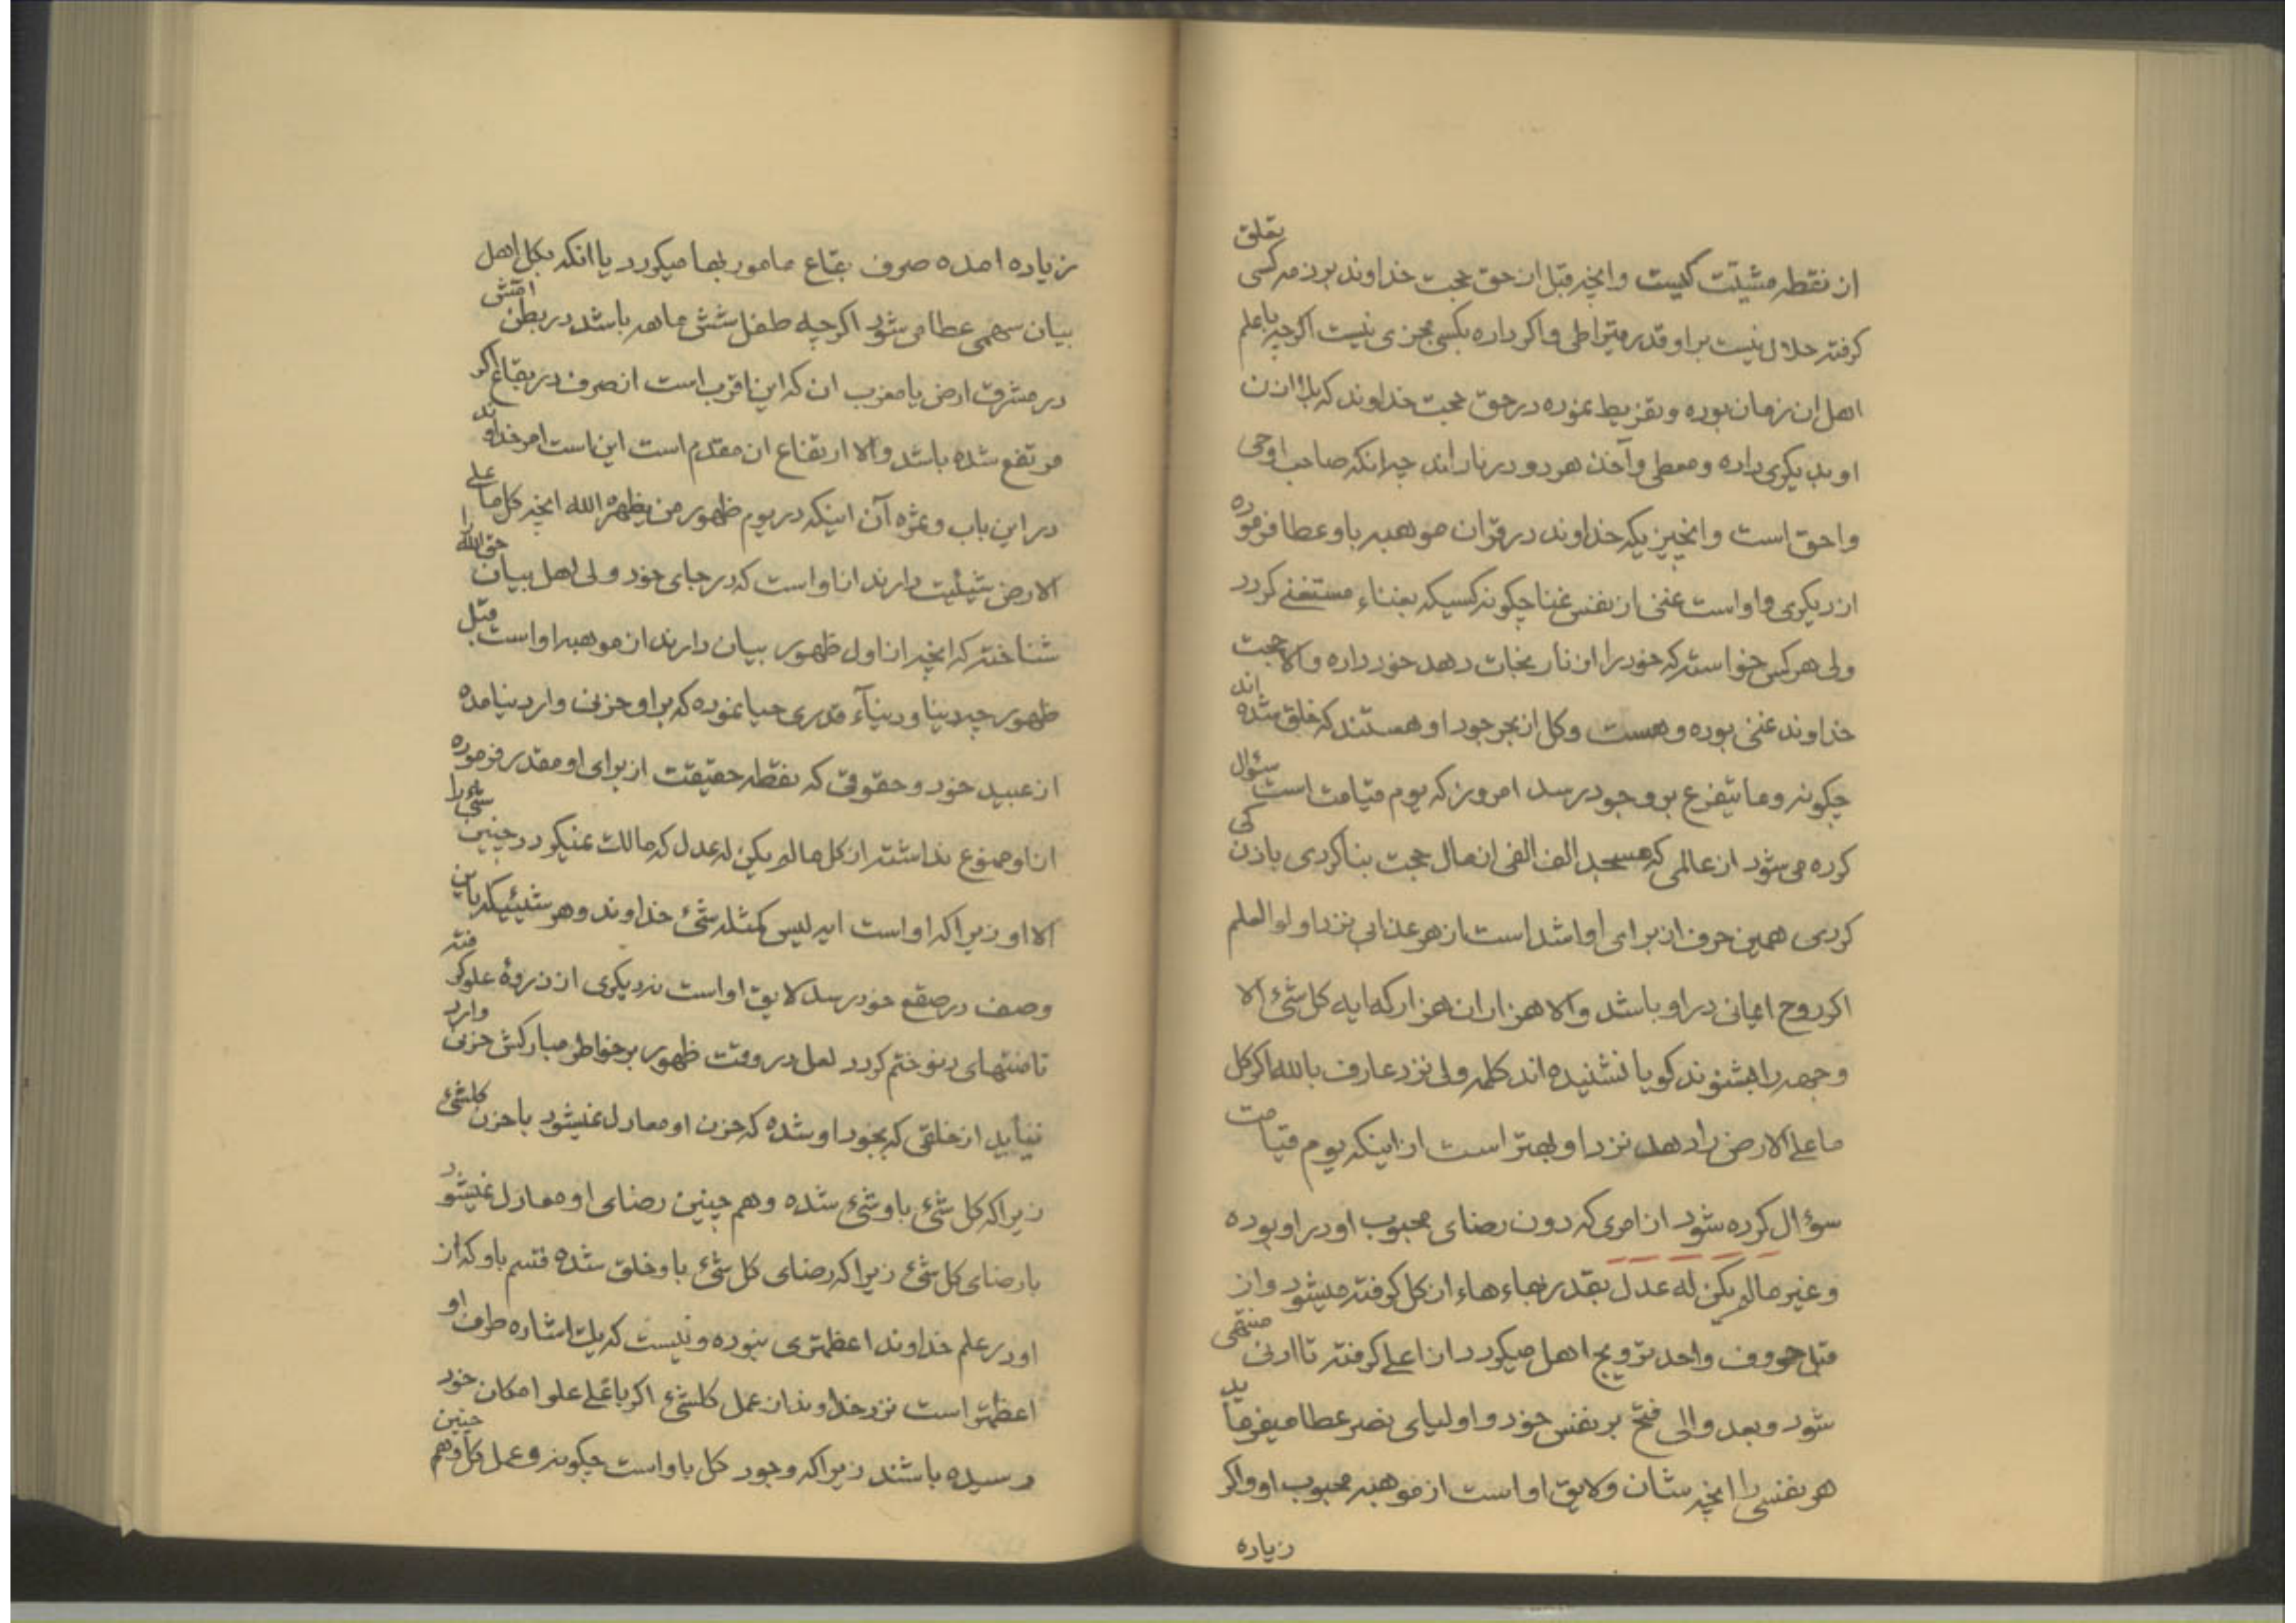 ان نقطه مشیّت کیست وانچه قبل از حق حجت خداوند بر ذمه کسی تعلق
کرفته حلال نیست بر او قدر قیراطی واکر داده بکسی مجزی نیست اکرچه باعلم
اهل ان زمان بوده وتفریط نموده در حق حجت خداوند که بلا اذن
او بدیکری داده ومعطی وآخذ هر دو در نار اند چرا انکه صاحب او حی
واحق است وانچیزیکه خداوند در قرآن موهبه باو عطا فرموده
از دیکری واو است غنی از نفس غنا چکونه کسیکه بغناء مستغنی کردد
ولی هر کس خواسته که خود را از نار نجات دهد خود داده والا حجت
خداوند غنی بوده وهست وکل از بحر جود او هستند که خلق شده اند
چکونه وما یتفرع بر وجود رسد امروز که یوم قیامت است سئوال
کرده می شود از عالمی که مسجد الف الفی از مال حجت بنا کردی باذن کی
کردی همین حرف از برای او اشد است از هر عذابی نزد اولوالعلم
اکر روح ایمانی در او باشد والا هزاران هزار که ایه کل شئ الا
وجهه را بشنوند کویا نشنیده اند کلمه ولی نزد عارف بالله اکر کل
ما علی الارض را دهد نزد او بهتر است از اینکه یوم قیامت
سؤال کرده شود از امری که دون رضای محبوب او در او بوده
وغیر ما لم یکن له عدل بقدر بهاء هاء از کل کرفته میشود واز
قبل حروف واحد ترویج اهل میکردد از اعلی کرفته تا ادنی منتهی
شود وبعد والی فتح بر نفس خود واولیای نصر عطا میفرماید
هر نفسی را انچه شان ولایق او است از موهبه محبوب او واکر
زیاده
زیاده امده صرف بقاع مامور بها میکردد یا انکه بکل اهل
بیان سهمی عطا می شود اکرچه طفل شش ماهه باشد در بطن امّش
در مشرق ارض یا مغرب ان که این اقرب است از صرف در بقاع اکر
مرتفع شده باشد والا ارتفاع ان مقدم است این است امر خداوند
در این باب وثمره آن اینکه در یوم ظهور من یظهره الله انچه کل ما علی
الارض شیئیت دارند از او است که در جای خود ولی اهل بیان حق الله را
شناخته که انچه از اول ظهور بیان دارند از موهبه او است قبل
ظهور چه دینا ودنیاء قدری حیا نموده که بر او حزنی وارد نیامده
از عبید خود وحقوقی که نقطه حقیقت از برای او مقدر فرموده
از او ممنوع نداشته از کل ما لم یکن له عدل که مالک نمیکردد چنین شئ را
الا او زیرا که او است ایه لیس کمثله شئ خداوند وهر شیئیکه باین
وصف در صقع خود رسد لایق او است نه دیکری از ذروهٔ علو کرفته
تا منتهای دنو ختم کردد لعل در وقت ظهور بر خواطر مبارکش حزنی وارد
نیاید از خلقی که بخود او شده که حزن او معادل نمیشود با حزن کلشئ
زیرا که کل شئ باو شئ شده وهم چنین رضای او معادل نمیشود
با رضای کل شئ زیرا که رضای کل شئ باو خلق شده قسم باو که از
او در علم خداوند اعظمتری نبوده ونیست که یک اشاره طرف او
اعظمتر است نزد خداوند از عمل کلشئ اکر باعلی علو امکان خود
رسیده باشند زیرا که وجود کل باو است چکونه وعمل کل وهم چنین